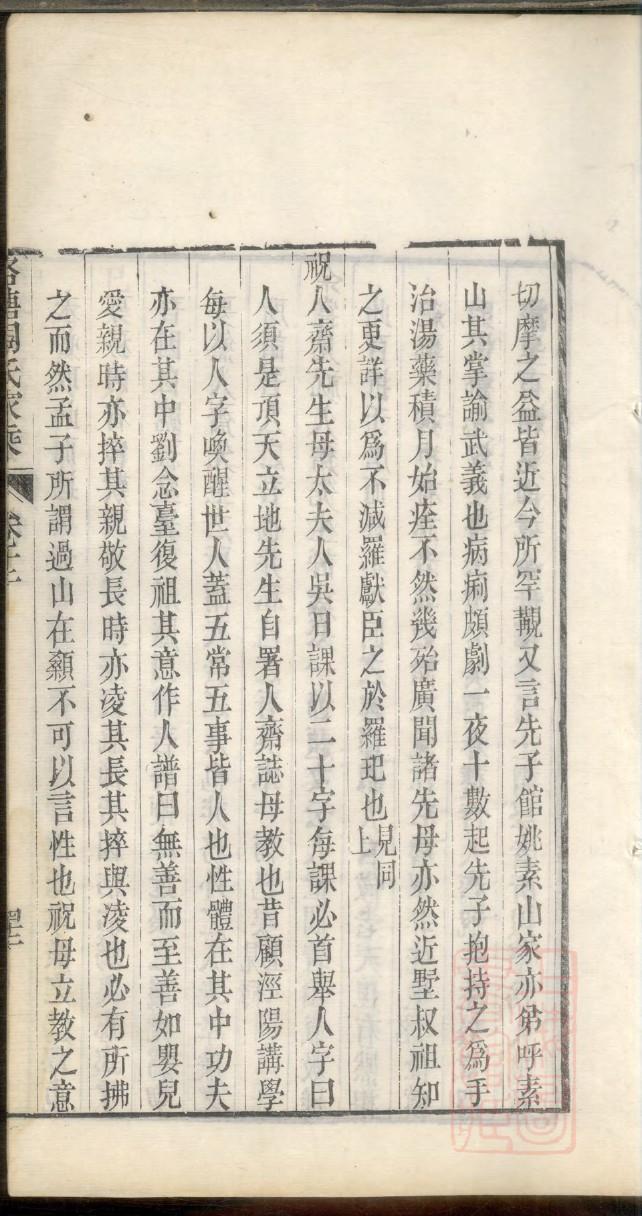 切摩之益皆近今所罕覯又言先子館姚素山家亦弟呼素
山其掌諭武義也病痢頗劇一夜十數起先子抱持之爲手
治湯藥積月始痊不然幾殆廣聞諸先母亦然近墅叔祖知
之更詳以爲不減羅獻臣之於羅玘也見同上
祝人齋先生母太夫人吳日課以二十字每課必首舉人字曰
人須是頂天立地先生自署人齋誌母教也昔顧涇陽講學
每以人字喚醒世人蓋五常五事皆人也性體在其中功夫
亦在其中劉念臺復祖其意作人譜曰無善而至善如嬰兒
愛親時亦捽其親敬長時亦凌其長其捽與凌也必有所拂
之而然孟子所謂過山在顙不可以言性也祝母立教之意
氏家乘